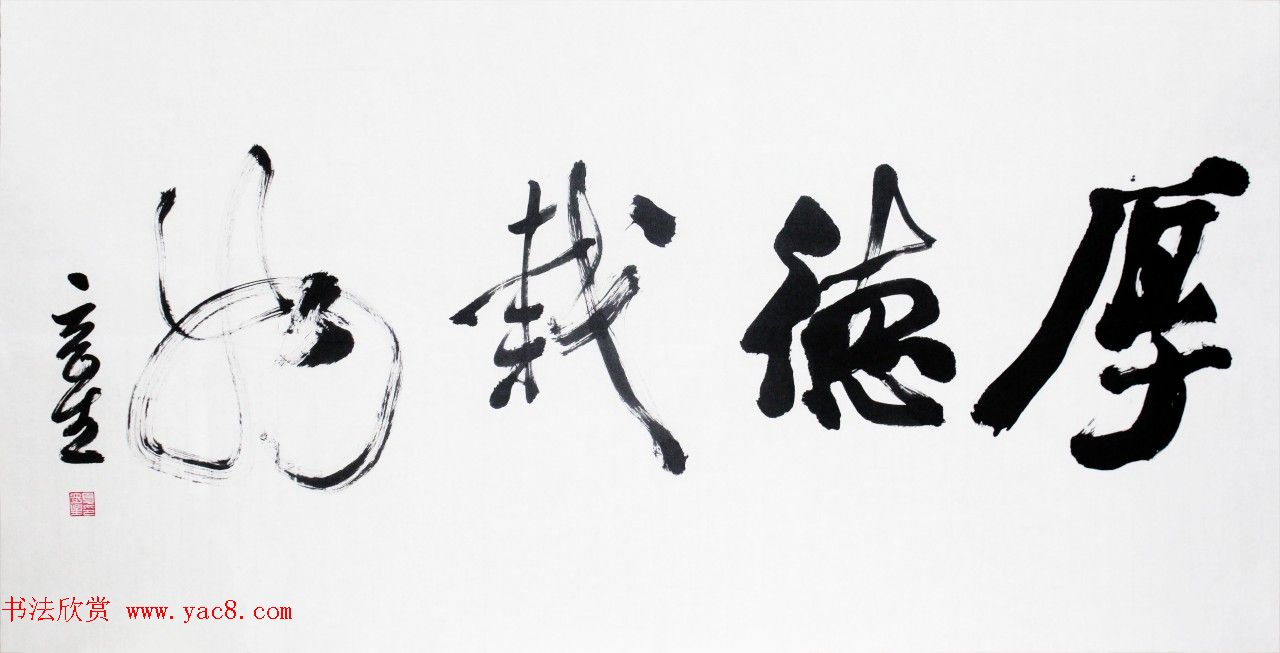 厚德载物
书法欣赏 www.yac8.com